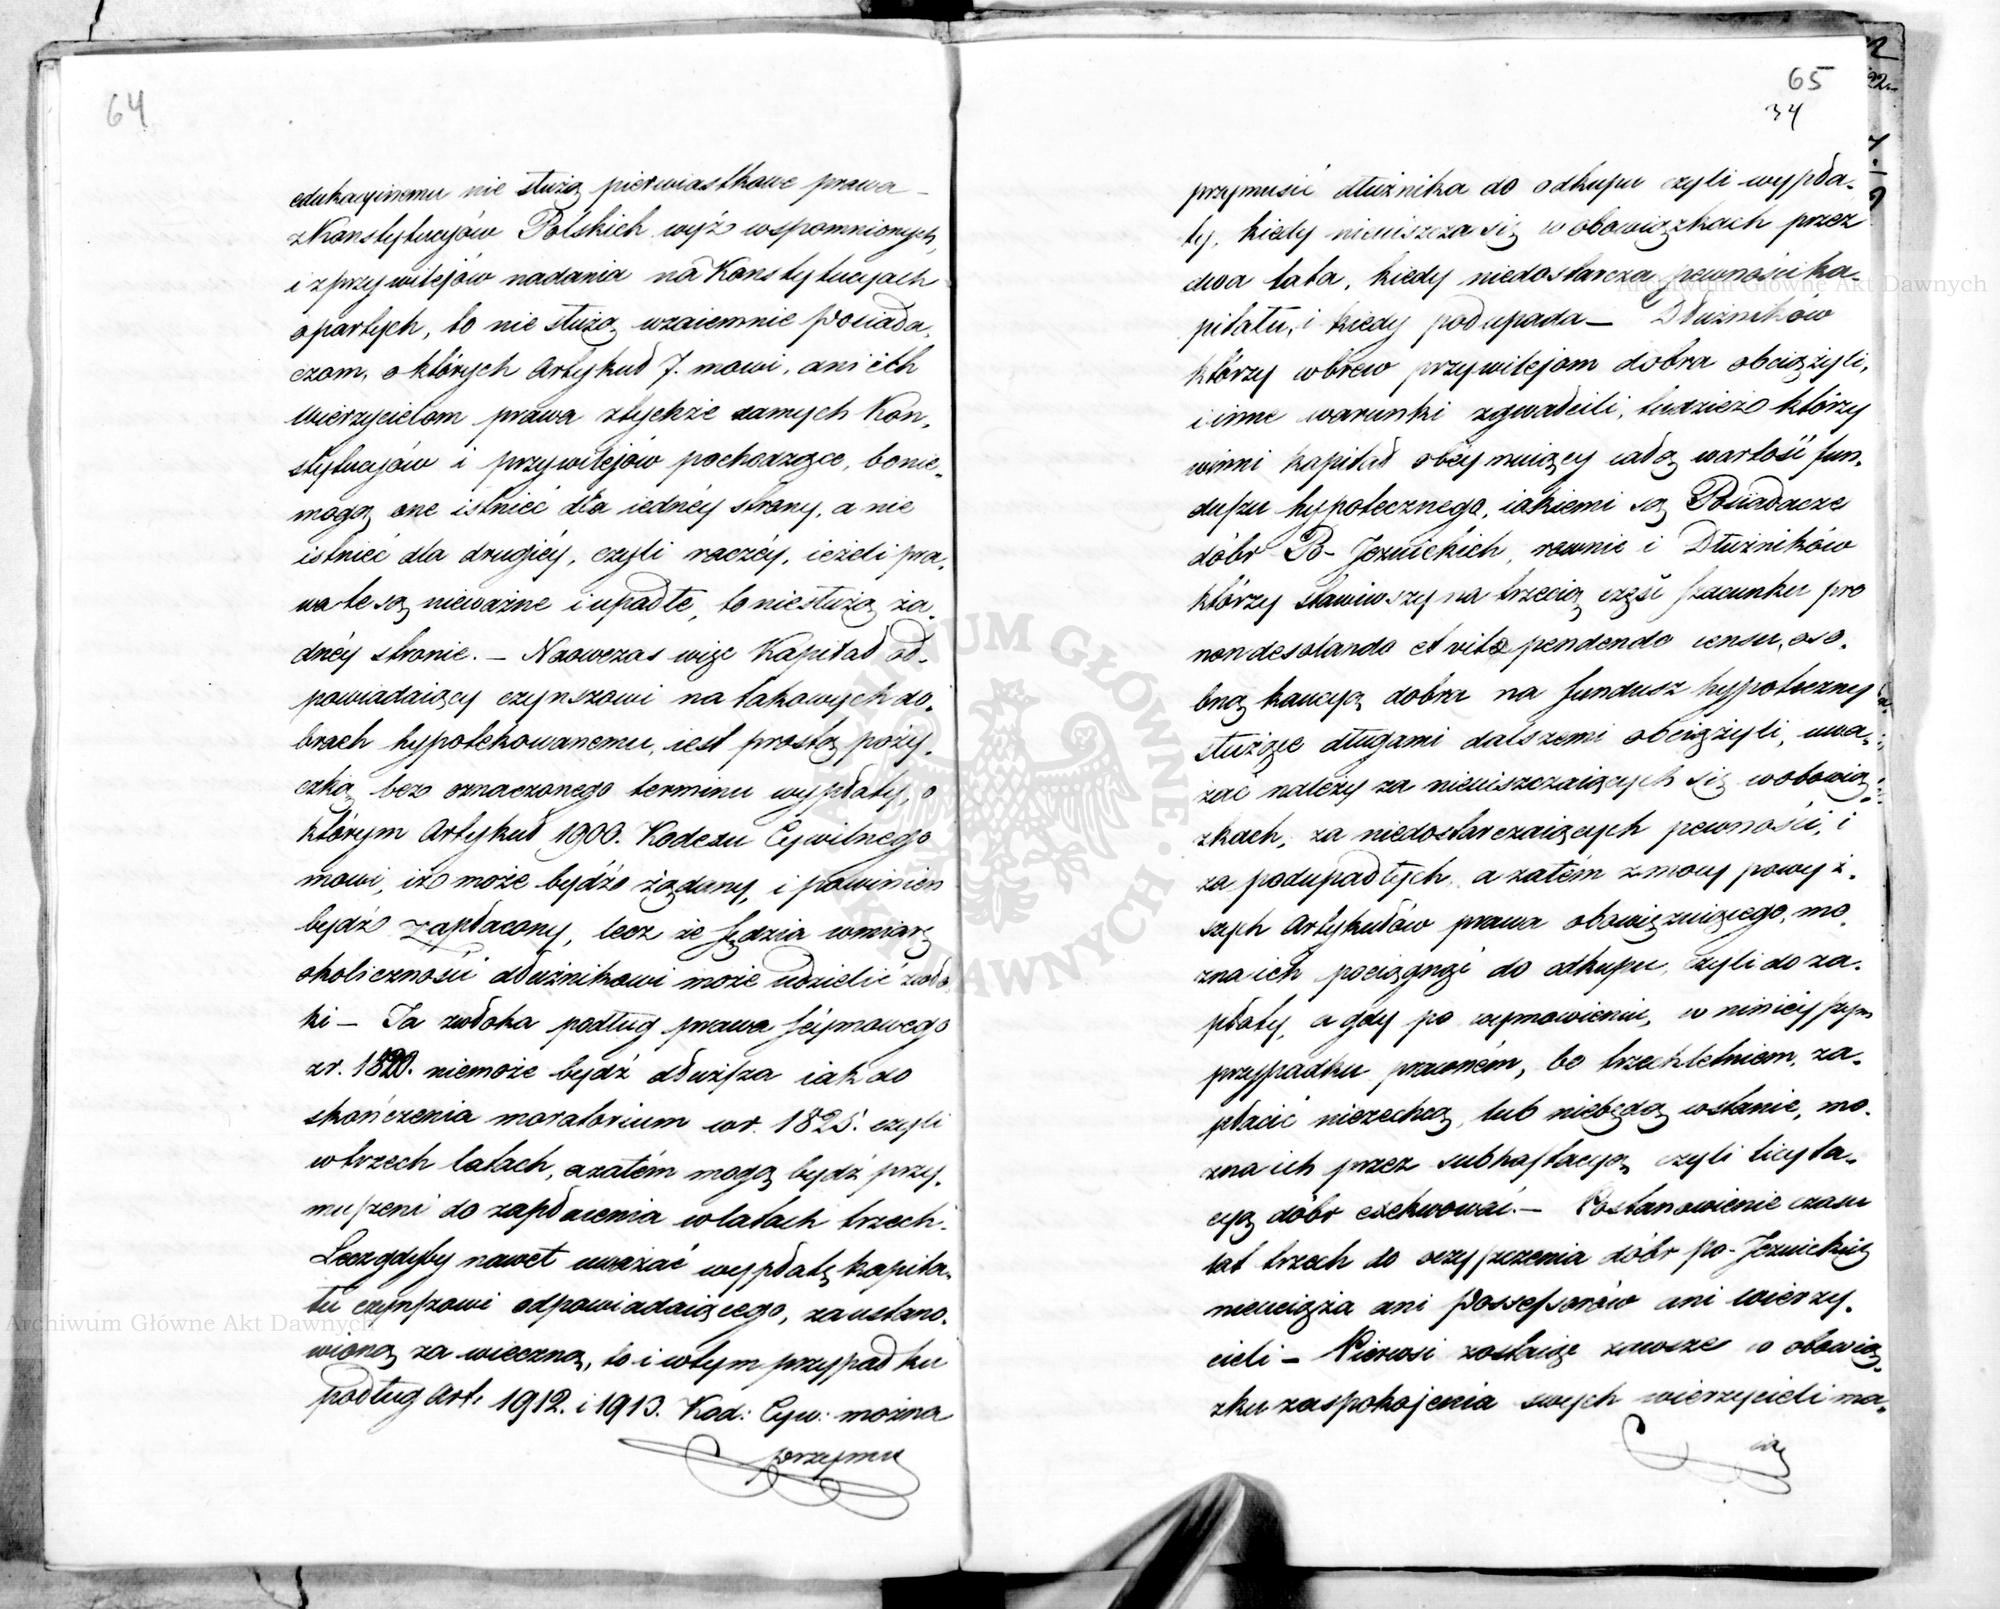 64
edukacyinemu nie służą pierwiastkowe prawa –
z Konstytucyjów Polskich wyżo wspomnionych,
i z przywilejów nadania na Konstytucyach
opartych, to nie służą wzaiemnie Posiada,
czom, o których Artykuł 7. mowi, ani ich
Wierzycielom prawa z tychże samych Kon,
stytucyjów i przywilejów pochodzące, bo nie,
mogą one istnieć dla iednéy strony, a nie
istnieć dla drugiéy, czyli raczéy, ieżeli pra,
wa te są nieważne i upadłe, to nie służą ża,
dnéy stronie. – Naowczas więc Kapitał od,
powiadaiący czynszowi na takowych do,
brach hypotekowanemu, iest prostą poży,
czką bez oznaczonego terminu wypłaty, o
którym Artykuł 1900. Kodexu Cywilnego
mowi, iż może bydź żądany, i powinien
bydź zapłacony, lecz że Sędzia w miarę
okoliczności dłużnikowi może udzielić zwło,
ki – Ta zwłoka podług prawa Séymowego
z r. 1820. niemoże bydź dłuższa iak do
skończenia moratorium w r. 1825. czyli
w trzech latach, a zatém mogą bydź przy,
muszeni do zapłacenia w latach trzech.
Lecz gdyby nawet uważać wypłatę kapita,
łu czynszowi odpowiadaiącego, za ustano,
wioną za wieczną, to i w tym przypadku
podług Art. 1912. i 1913. Kod: Cyw: można
przymu
65
34
przymusić dłużnika do odkupu czyli wypła,
ty, kiedy nieuiszcza się w obowiązkach przez
dwa lata, kiedy niedostarcza pewności ka,
pitału, i kiedy podupada – Dłużników
którzy wbrew przywilejom dobra obciążyli,
i inne warunki zgwałcili, tudzież którzy
winni kapitał obéymuiący całą wartość fun,
duszu hypotecznego, iakiemi są Posiadacze
dóbr Po- Jezuickich, rownie i Dłużników
którzy stawiwszy na trzecią część szacunku pro
non desolando et rite pendendo censu, oso,
bną kaucyą dobra na fundusz hypoteczny
służące długami dalszemi obciążyli, uwa,
żać należy za nieuiszczaiących się w obowią,
zkach, za niedostarczaiących pewności, i
za podupadłych, a zatém z mocy powyż,
szych Artykułów prawa obowiązuiącego, mo,
zna ich pociągnąć do odkupu, czyli do za,
płaty, a gdy po wymowieniu, w ninieyszym
przypadku prawném, bo trzechletniem, za,
płacić niezechcą, lub niebędą w stanie, mo,
zna ich przez subhastacyą czyli licyta,
cyą dóbr exekwować. – Postanowienie czasu
lat trzech do oczyszczenia dóbr po- Jezuickich
nieuciąża ani Possessorów ani wierzy,
cieli – Pierwsi zostaią zawsze w obowią,
zku zaspokojenia swych wierzycieli ma,
ią
Archiwum Główne Akt Dawnych
Archiwum Główne Akt Dawnych
ARCHIWUM GŁÓWNE AKT DAWNYCH